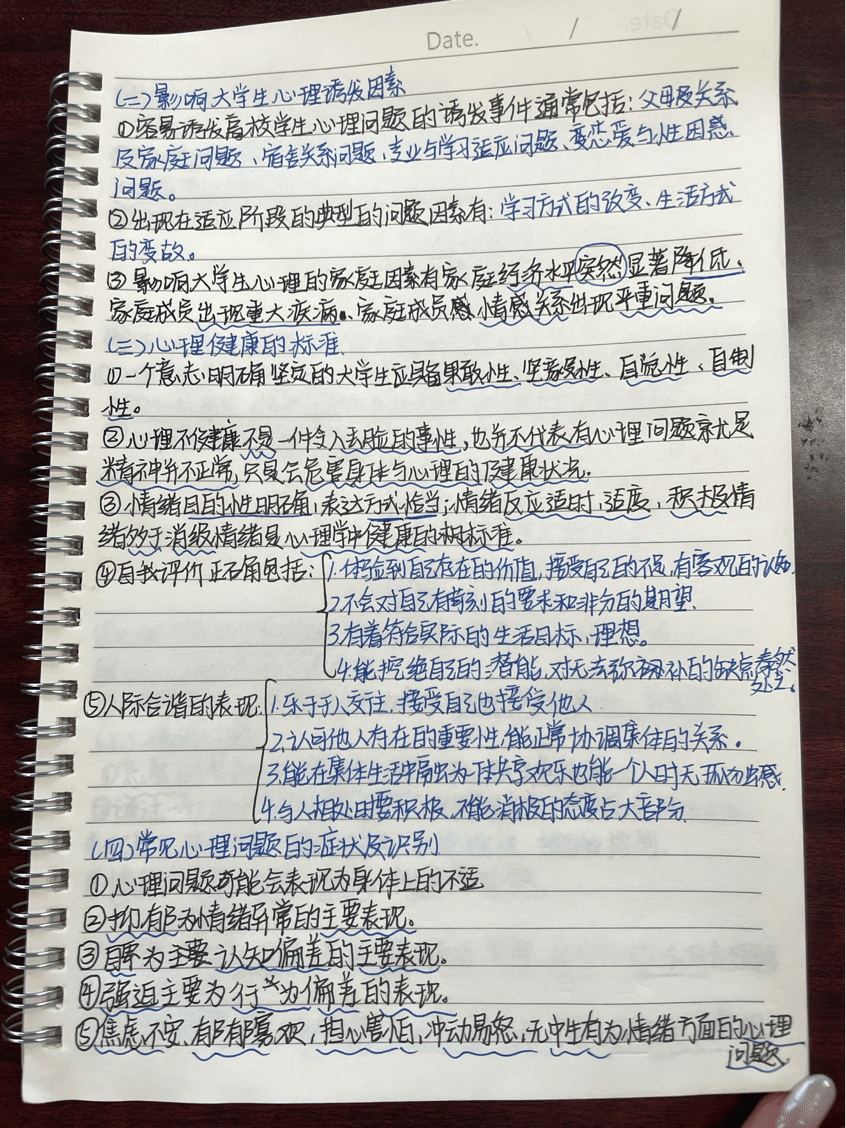 Date. / /
(二)影响大学生心理诱发因素
①容易诱发高校学生心理问题的诱发事件通常包括：父母及关系
及家庭问题、宿舍关系问题、专业与学习适应问题、变恋爱与性困惑
问题。
②出现在适应阶段的典型的问题因素有：学习方式的改变、生活方式
的变故。
③影响大学生心理的家庭因素有家庭经济水平突然显著降低、
家庭成员出现重大疾病。家庭成员感情感关系出现严重问题。
(三)心理健康的标准
①一个意志明确坚定的大学生应具备果敢性、坚韧性、自觉性、自制
性。
②心理不健康不是一件令人丢脸的事性，也并不代表有心理问题就是
精神并不正常，只是会危害身体与心理的健康状况。
③情绪目的性明确，表达方式恰当；情绪反应适时，适度，积极情
绪多于消极情绪是心理学中健康的标准。
④自我评价正确包括：1.体验到自己存在的价值，接受自己的不足，有客观的认知
2.不会对自己有苛刻的要求和非分的期望
3.有着符合实际的生活目标，理想。
4.能挖绝自己的潜能，对无法弥补的缺点泰然
处之。
⑤人际合谐的表现：1.乐于于人交往，接受自己也接受他人
2.认可他人存在的重要性，能正常协调集体的关系。
3.能在集体生活中融为一体共享欢乐也能一个人时无孤独感.
4.与人相处时要积极，不能消极的态度占大部分.
(四)常见心理问题的症状及识别
①心理问题可能会表现为身体上的不适
②抑郁为情绪异常的主要表现。
③自卑为主要认知偏差的主要表现。
④强迫主要为行为偏差的表现。
⑤焦虑不安、郁郁寡欢，担心害怕，冲动易怒，无中生有为情绪方面的心理
问题.